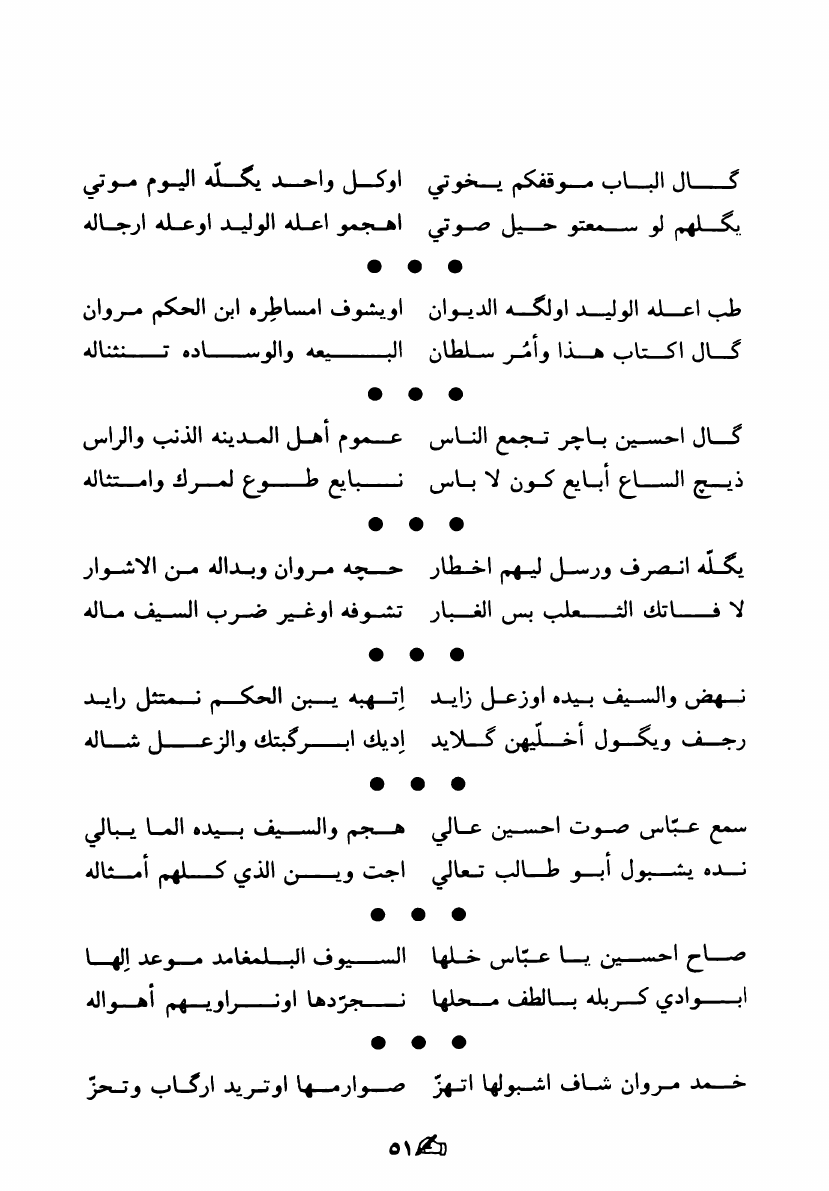 گال الباب موقفكم يخوتي اوكل واحد يگلّه اليوم موتي
يگلهم لو سمعتو حيل صوتي اهجمو اعله الوليد اوعله ارجاله
● ● ●
طب اعله الوليد اولگه الديوان اويشوف امساطِره ابن الحكم مروان
گال اكتاب هذا وأمُر سلطان البيعه والوساده تنثناله
● ● ●
گال احسين باچر تجمع الناس عموم أهل المدينه الذنب والراس
ذيچ الساع أبايع كون لا باس نبايع طوع لمرك وامتثاله
● ● ●
يگلّه انصرف ورسل ليهم اخطار حچه مروان وبداله من الاشوار
لا فاتك الثعلب بس الغبار تشوفه اوغير ضرب السيف ماله
● ● ●
نهض والسيف بيده اوزعل زايد إتهبه يبن الحكم نمتثل رايد
رجف ويگول أخلّيهن گلايد إديك ابرگبتك والزعل شاله
● ● ●
سمع عبّاس صوت احسين عالي هجم والسيف بيده الما يبالي
نده يشبول أبو طالب تعالي اجت وين الذي كلهم أمثاله
● ● ●
صاح احسين يا عبّاس خلها السيوف البلمغامد موعد إلها
ابوادي كربله بالطف محلها نجرّدها اونراويهم أهواله
● ● ●
خمد مروان شاف اشبولها اتهزّ صوارمها اوتريد ارگاب وتحزّ
✍٥١